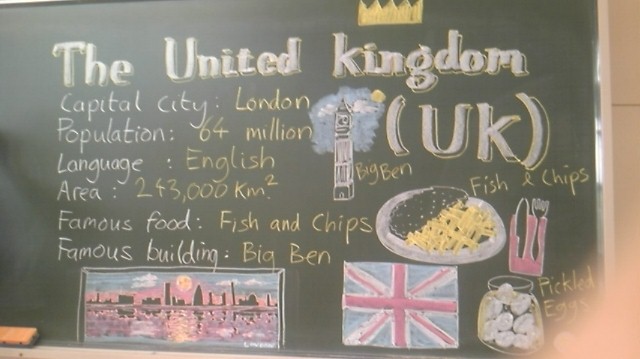 The United kingdom
(UK)
Capital City: London
Population: 64 million
Language : English
Area : 243,000 Km²
Famous food: Fish and Chips
Famous building: Big Ben
Big Ben
Fish & Chips
Pickled
Eggs